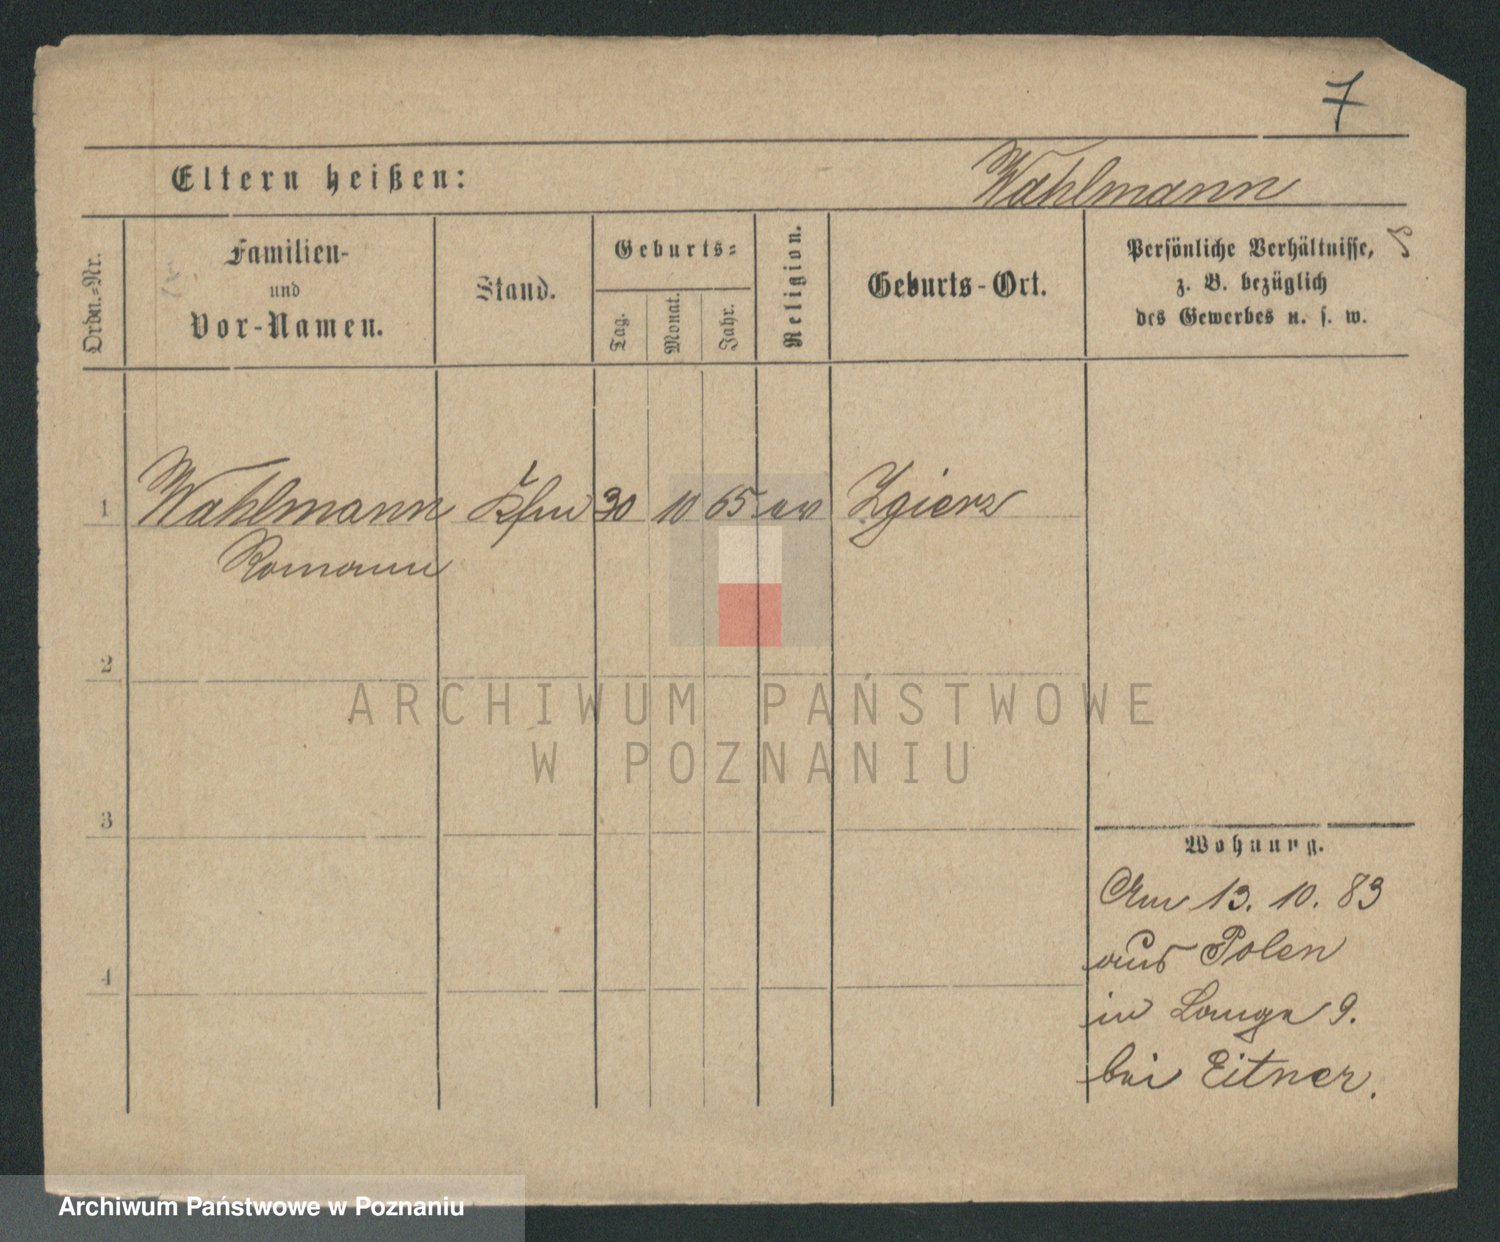 7
Eltern heißen:
Wahlmann
Ordn.-Nr.
Familien-
und
Vor-Namen.
Stand.
Geburts-
Tag.
Monat.
Jahr.
Religion.
Geburts-Ort.
Persönliche Verhältnisse,
z. B. bezüglich
des Gewerbes u. s. w.
1 Wahlmann Kfm 30 10 65 ev Zgierz
Romann
2
ARCHIWUM PAŃSTWOWE
W POZNANIU
3
Wohnung.
Am 13. 10. 83
aus Polen
4
in Lange 9.
bei Eitner.
Archiwum Państwowe w Poznaniu